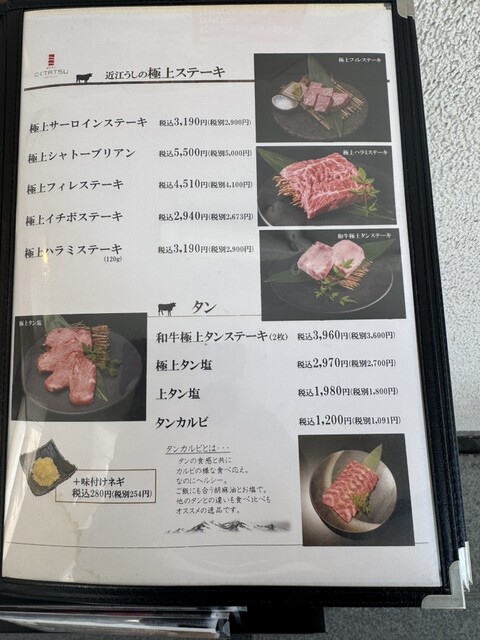 TATSU
近江うしの極上ステーキ
極上フィレステーキ
極上サーロインステーキ 税込3,190円(税別2,900円)
極上シャトーブリアン 税込5,500円(税別5,000円)
極上フィレステーキ 税込4,510円(税別4,100円)
極上イチボステーキ 税込2,940円(税別2,673円)
極上ハラミステーキ 税込3,190円(税別2,900円)
(120g)
極上ハラミステーキ
和牛極上タンステーキ
タン
極上タン塩
和牛極上タンステーキ(2枚) 税込3,960円(税別3,600円)
極上タン塩 税込2,970円(税別2,700円)
上タン塩 税込1,980円(税別1,800円)
タンカルビ 税込1,200円(税別1,091円)
タンカルビとは・・・
タンの食感と共に
カルビの様な食べ応え。
なのにヘルシー。
ご飯にも合う胡麻油とお塩で。
他のタンとの違いも食べ比べも
オススメの逸品です。
+味付けネギ
税込280円(税別254円)